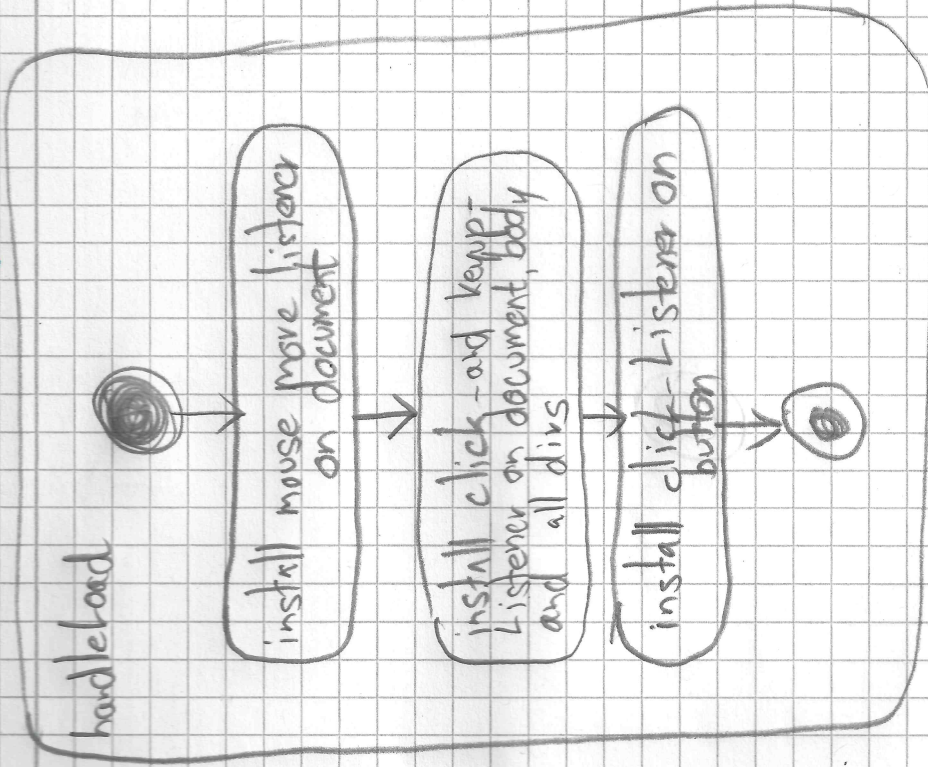 handleLoad
install mouse move listener
on document
install click-and keyup-
Listener on document, body
and all divs
install click-Listener on
button